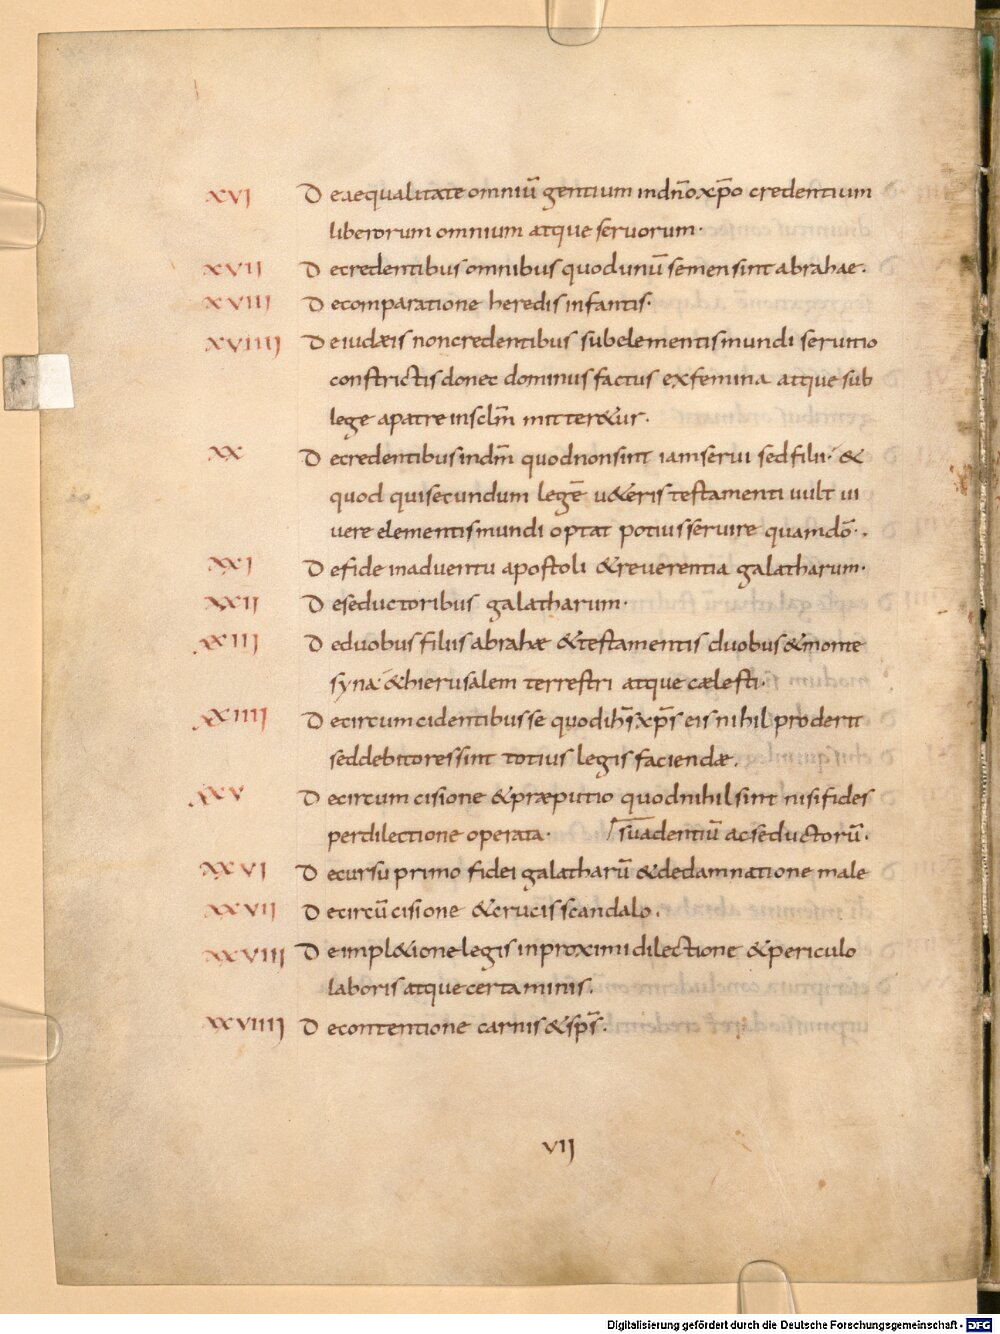 XVI De aequalitate omniū gentium in dn̄o xp̄o credentium
liberorum omnium atque servorum·
XVII De credentibus omnibus quod unū semen sint abrahae.
XVIII De comparatione heredis infantis·
XVIIII De iudæis non credentibus sub elementis mundi servitio
constrictis donec dominus factus ex femina atque sub
lege a patre in sclm̄ mitter&ur·
XX De credentibus in dm̄ quod non sint iam servi sed filii· &
quod qui secundum legē u&eris testamenti vult vi
vere elementis mundi optat potius servire quam dō·.
XXI De fide in adventu apostoli & reverentia galatharum·
XXII De seductoribus galatharum·
XXIII De duobus filiis abrahæ & testamentis duobus & monte
syna· & hierusalem terrestri atque cælesti·
XXIIII De circumcidentibus se quod ih̄s xp̄s eis nihil proderit
sed debitores sint totius legis faciendæ.
XXV De circumcisione & præputio quod nihil sint nisi fides
per dilectione operata· suadentiū ac seductorū.
XXVI De cursu primo fidei galatharū & de damnatione male
XXVII De circū cisione & crucis scandalo.
XXVIII De impl&ione legis in proximi dilectione & periculo
laboris atque certaminis.
XXVIIII De contentione carnis & sp̄s·
VII
Digitalisierung gefördert durch die Deutsche Forschungsgemeinschaft - DFG